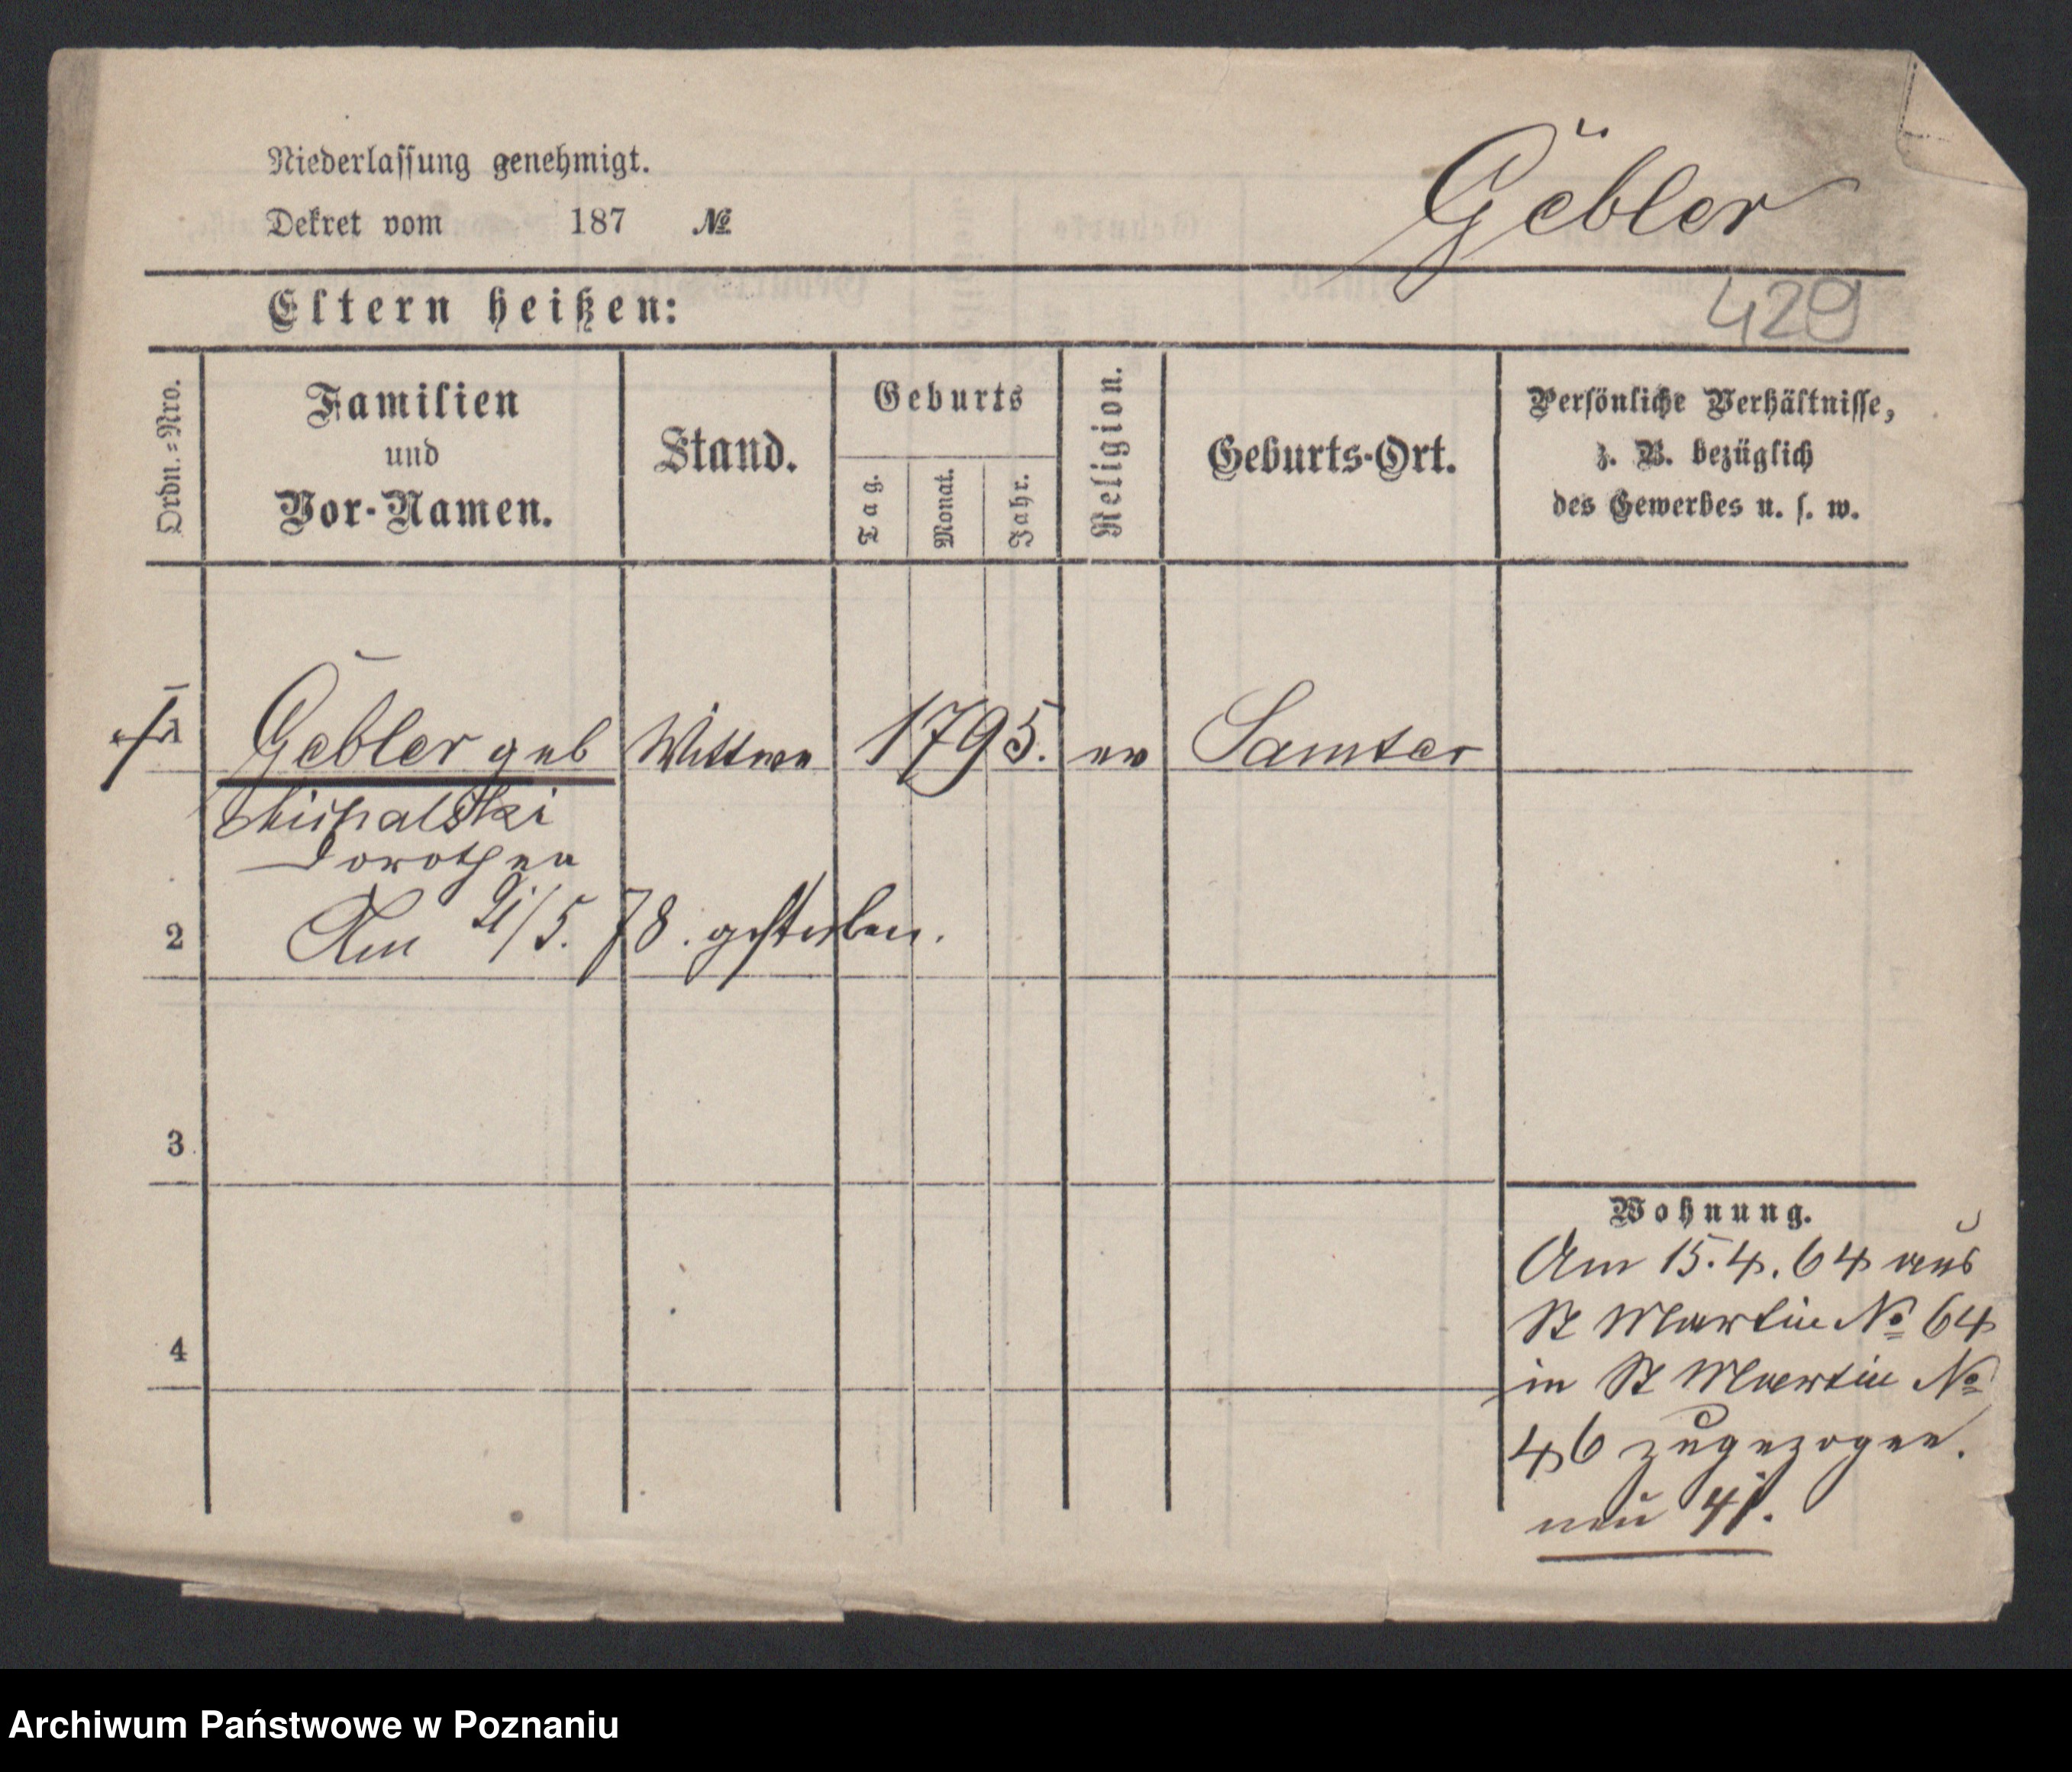 Niederlassung genehmigt.
Dekret vom 187 №
Gebler
429
Eltern heißen:
Ordn.-Nro.
Familien
und
Vor-Namen.
Stand.
Geburts
Tag.
Monat.
Jahr.
Religion.
Geburts-Ort.
Persönliche Verhältnisse,
z. B. bezüglich
des Gewerbes u. s. w.
1 Gebler geb Wittwe 1795. ev Samter
Michalski
Dorothea
2 Am /5. 78. gestorben.
3
4
Wohnung.
Am 15.4.64 aus
St Martin № 64
in St Martin №
46 zugezogen.
neu 41.
Archiwum Państwowe w Poznaniu